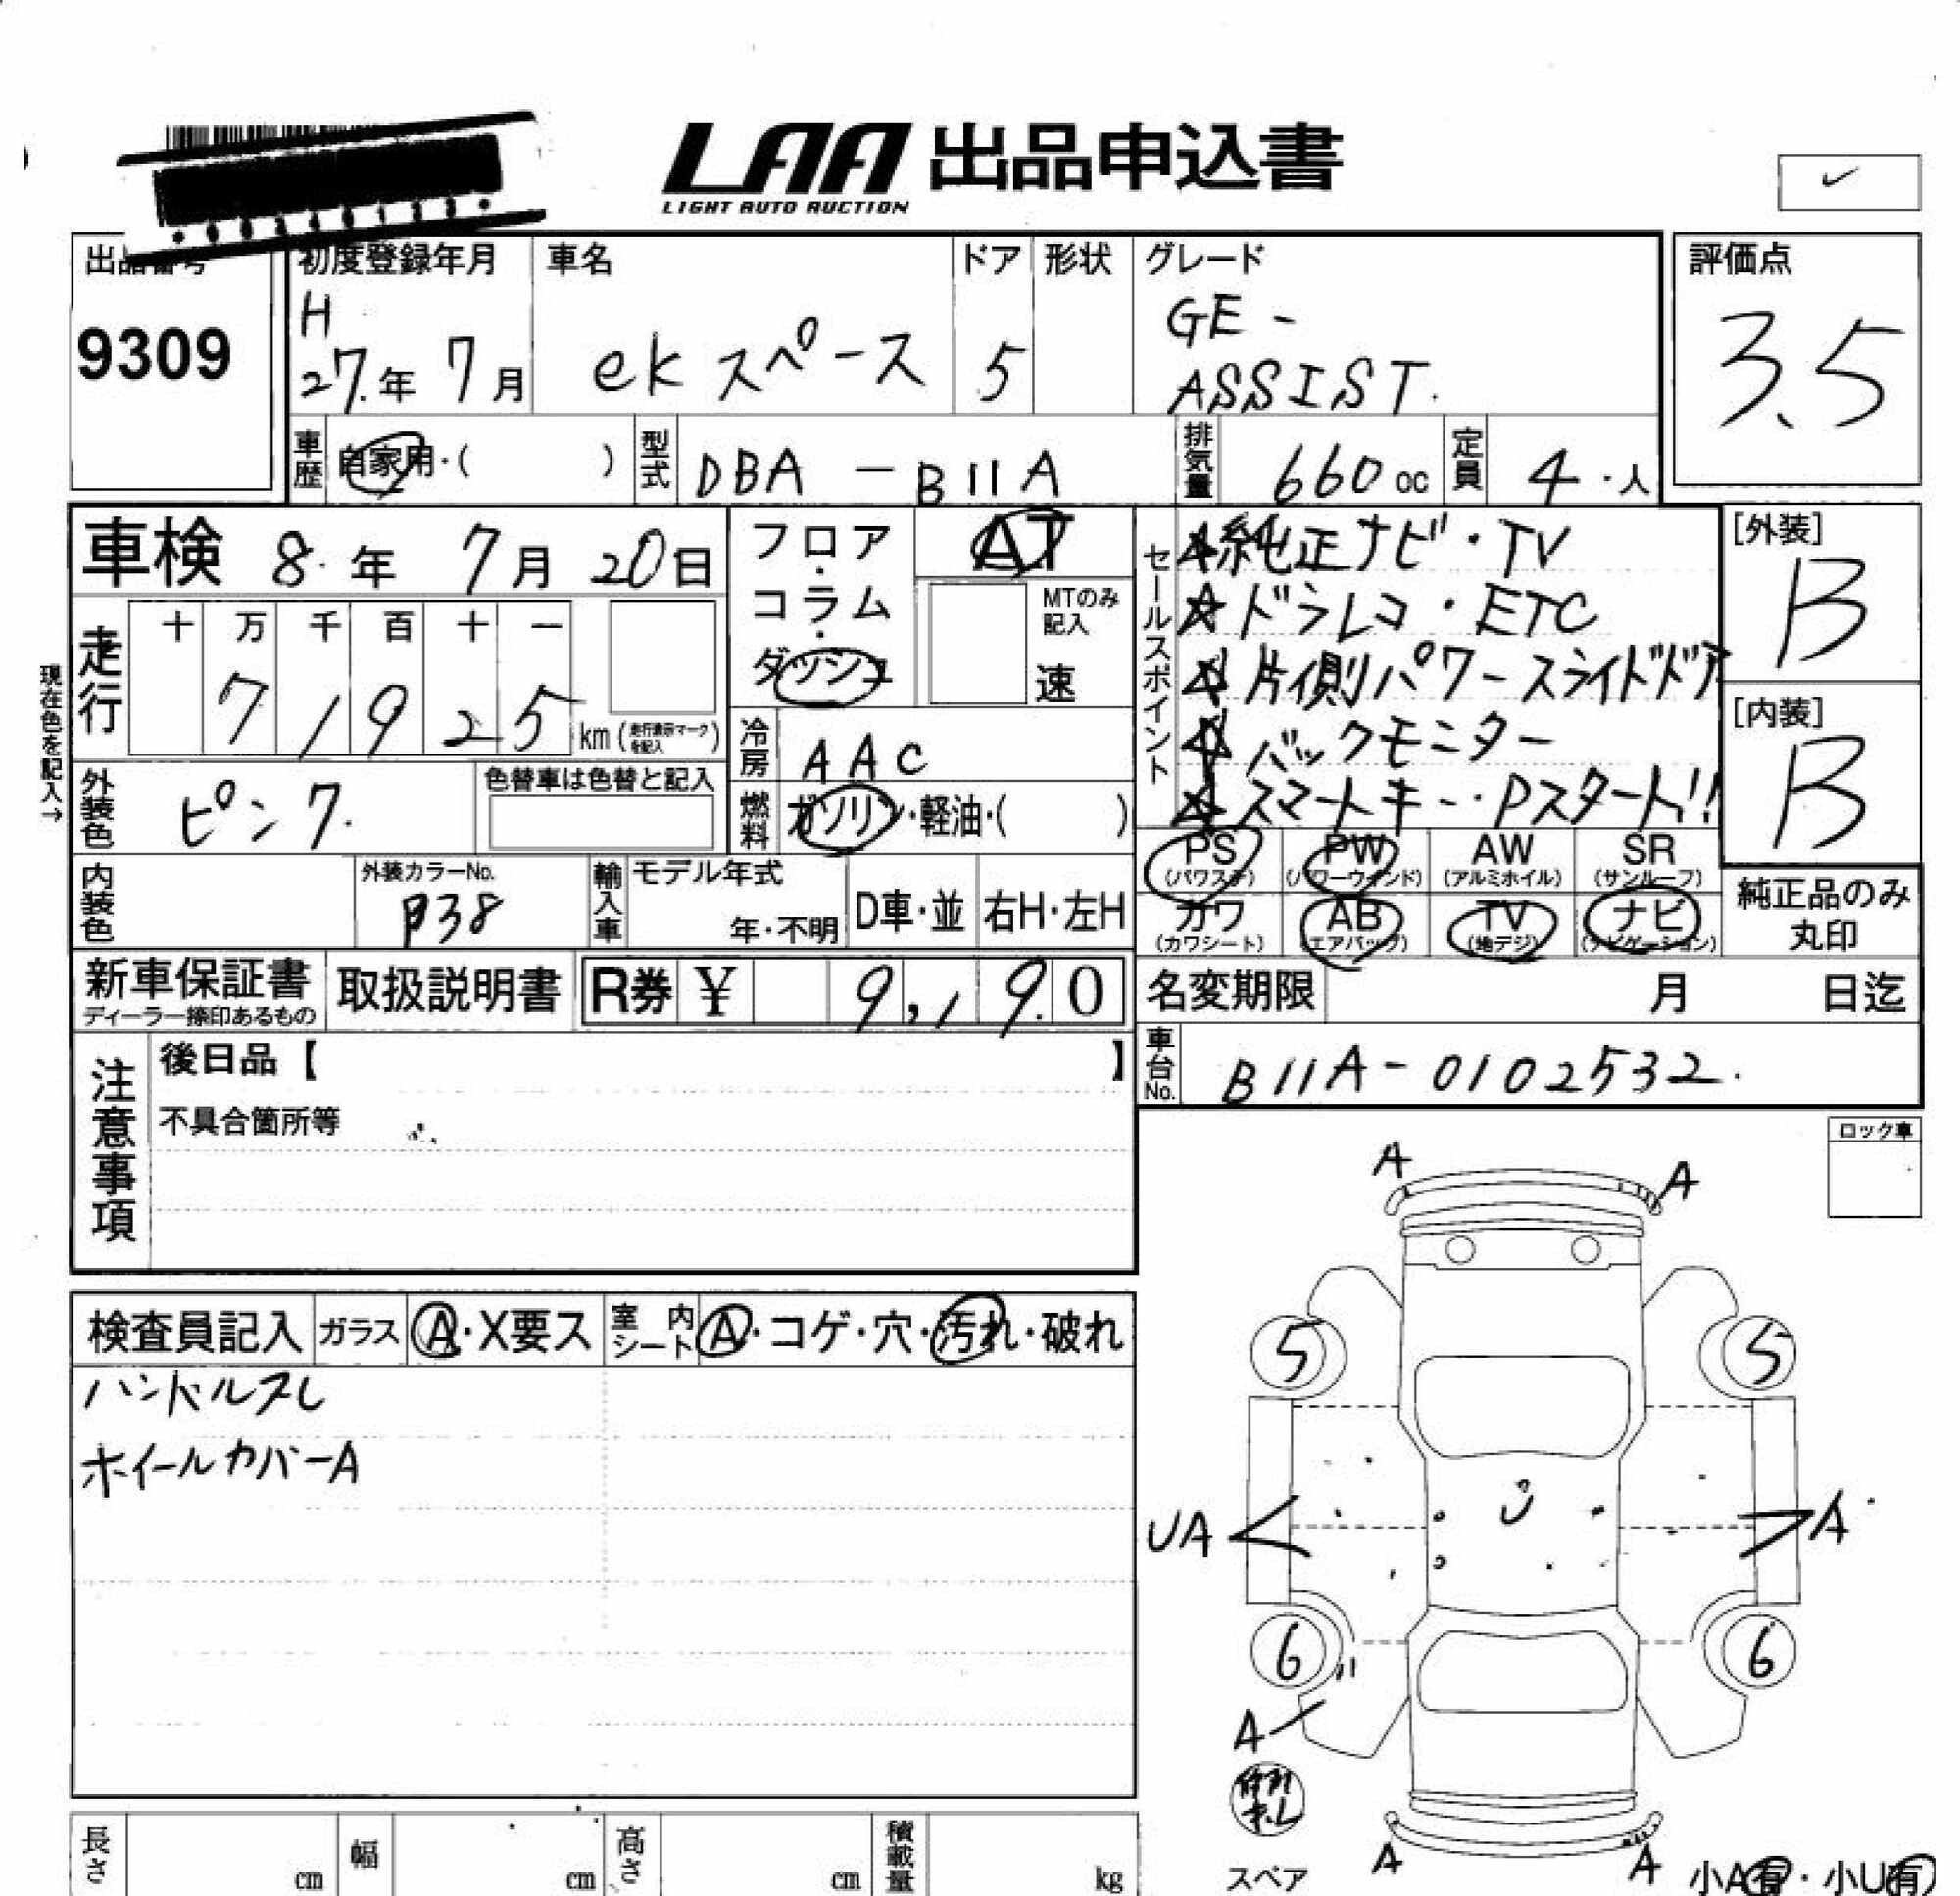 LAA 出品申込書
LIGHT AUTO AUCTION
出品番号
9309
初度登録年月
H
27.年 7月
車名
ekスペース
ドア
5
形状
グレード
GE-
ASSIST.
評価点
3.5
車歴 自家用・( )
型式 DBA-B11A
排気量 660cc
定員 4・人
車検 8.年 7月 20日
現在色を記入→
走行 十 万 千 百 十 一
7 1 9 2 5 km (走行表示マークを記入)
フロア・コラム・ダッシュ
AT
MTのみ記入
速
セールスポイント
☆純正ナビ・TV
☆ドラレコ・ETC
☆片側パワースライドドア
☆バックモニター
☆スマートキー・Pスタート!!
[外装]
B
[内装]
B
冷房 AAC
外装色 ピンク.
色替車は色替と記入
燃料 ガソリン・軽油・( )
PS (パワステ) PW (パワーウインド) AW (アルミホイル) SR (サンルーフ)
カワ (カワシート) AB (エアバッグ) TV (地デジ) ナビ (ナビゲーション)
純正品のみ
丸印
内装色
外装カラーNo.
P38
輸入車 モデル年式
年・不明 D車・並 右H・左H
新車保証書
ディーラー捺印あるもの
取扱説明書
R券 ¥ 9,190
名変期限 月 日迄
車台No. B11A-0102532.
注意事項
後日品【 】
不具合箇所等
ロック車
A A
検査員記入 ガラス A・X要ス 室内シート A・コゲ・穴・汚れ・破れ
ハンドルスレ
ホイールカバーA
5 5
UA A
6 6
A
スペア
A A
小A有・小U有
長さ cm 幅 cm 高さ cm 積載量 kg